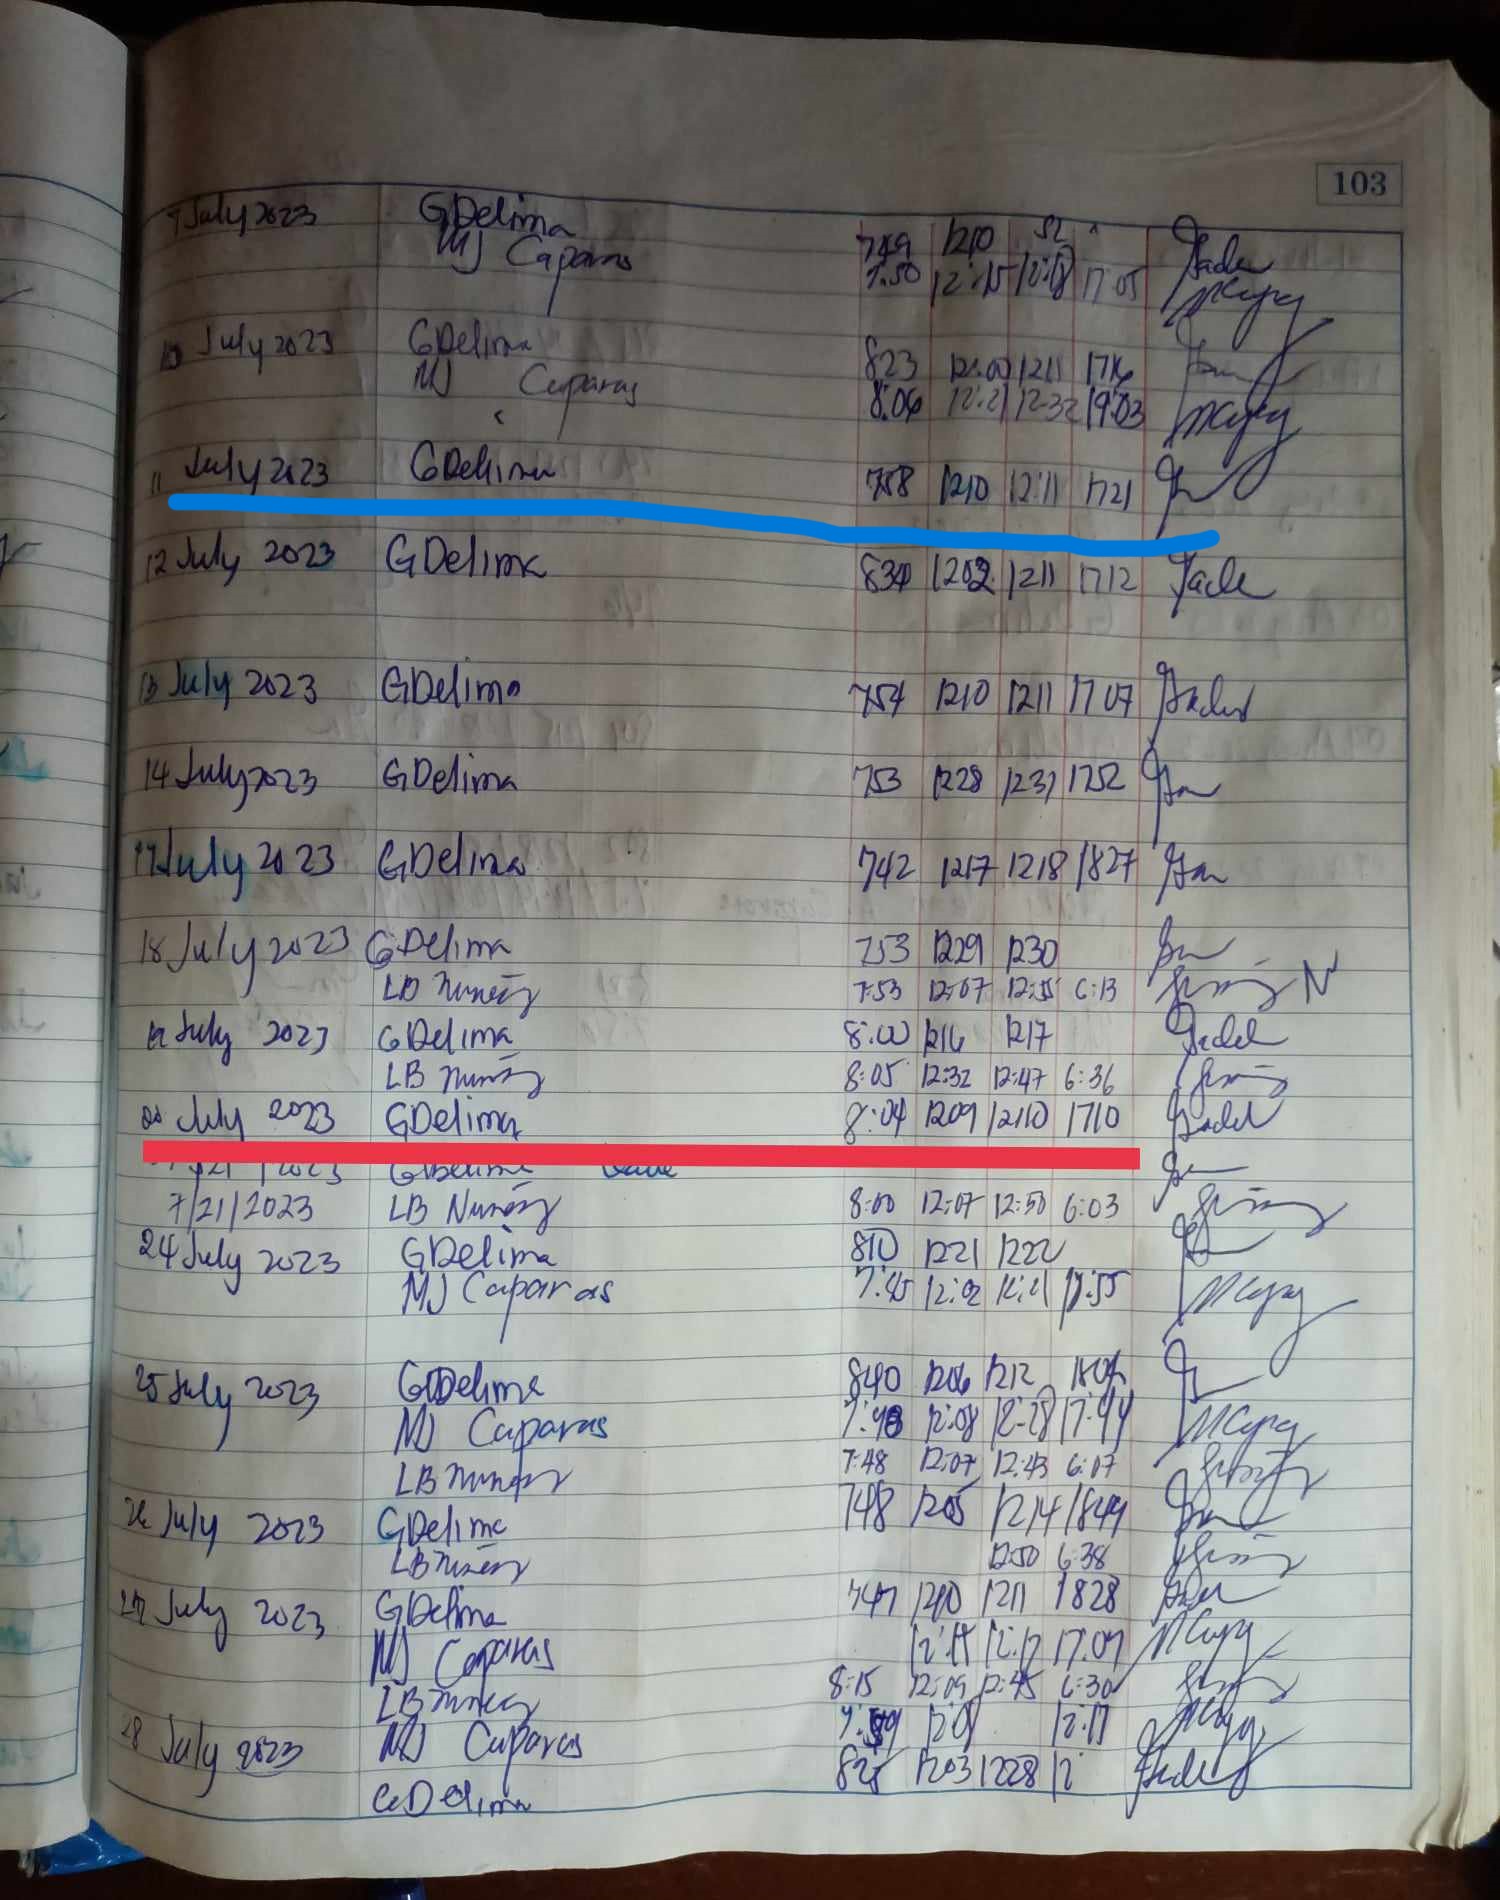 103
7 July 2023 GDelima 749 1210
MJ Caparas 7:50 12:15 12:18 17:05
10 July 2023 GDelima 823 12:00 1211 1716
MJ Caparas 8:06 12:21 12:32 19:03
11 July 2023 GDelima 758 1210 12:11 1721
12 July 2023 GDelima 834 1202 1211 1712 Jade
13 July 2023 GDelima 754 1210 1211 1707
14 July 2023 GDelima 753 1228 1231 1752
17 July 2023 GDelima 742 1217 1218 1827
18 July 2023 GDelima 753 1229 1230
LB Nuñez 7:53 12:07 12:55 6:13
19 July 2023 GDelima 8:00 1216 1217
LB Nuñez 8:05 12:32 12:47 6:36
20 July 2023 GDelima 8:04 1209 1710
GDelima
7/21/2023 LB Nuñez 8:00 12:07 12:50 6:03
24 July 2023 GDelima 810 1221 1222
MJ Caparas 7:45 12:02 12:21 17:55
25 July 2023 GDelima 840 1206 1212
MJ Caparas 12:08 12:28 17:44
LB Nuñez 7:48 12:07 12:43 6:07
26 July 2023 GDelima 748 1205 1214 1849
LB Nuñez 12:50 6:38
27 July 2023 GDelima 747 1210 1211 1828
MJ Caparas 12:15 12:17 17:07
LB Nuñez 8:15 12:09 12:45 6:30
28 July 2023 MJ Caparas 12:17
GDelima 825 1203 1228